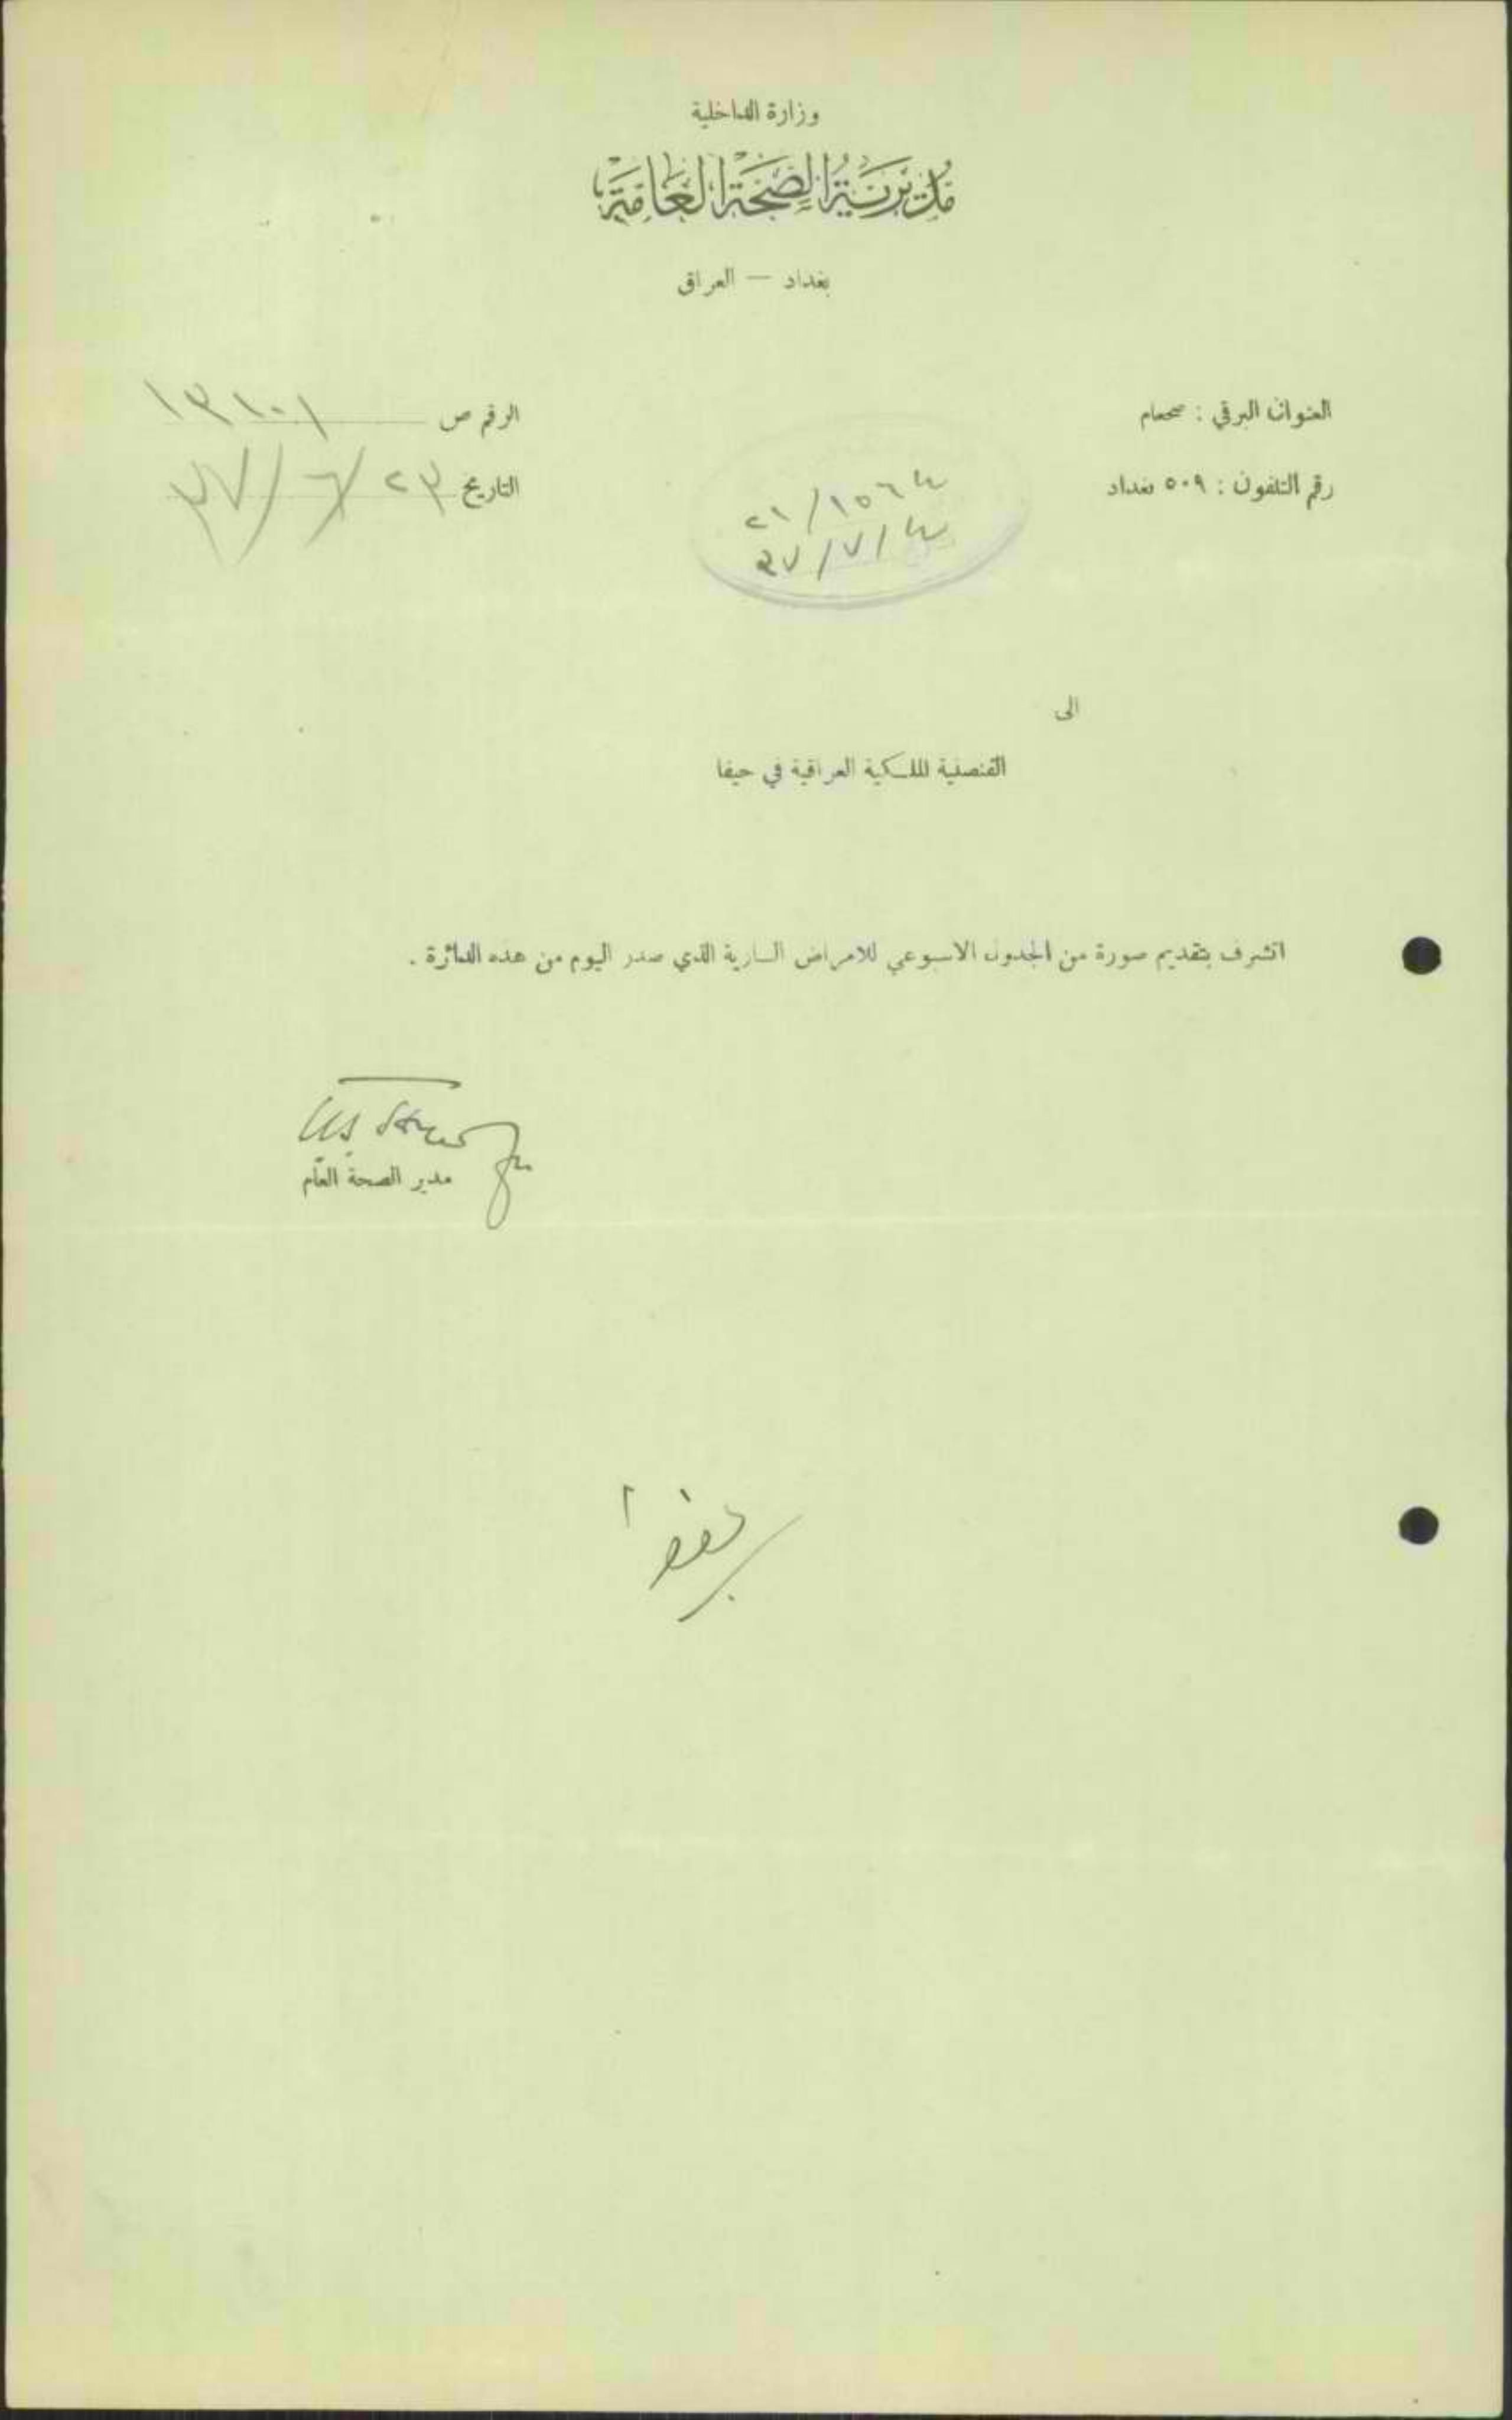 وزارة الداخلية
مُدِيرِيَّةُ الصِّحَّةِ الْعَامَّةِ
بغداد — العراق
العنوان البرقي : صحعام
الرقم ص ١٣١٠١
رقم التلفون : ٥٠٩ بغداد
التاريخ ٢٣/٦/٣٧
٢١/١٥٦٤
٣٧/٧/٤
الى
القنصلية الملكية العراقية في حيفا
اتشرف بتقديم صورة من الجدول الاسبوعي للامراض السارية الذي صدر اليوم من هذه الدائرة .
مدير الصحة العام